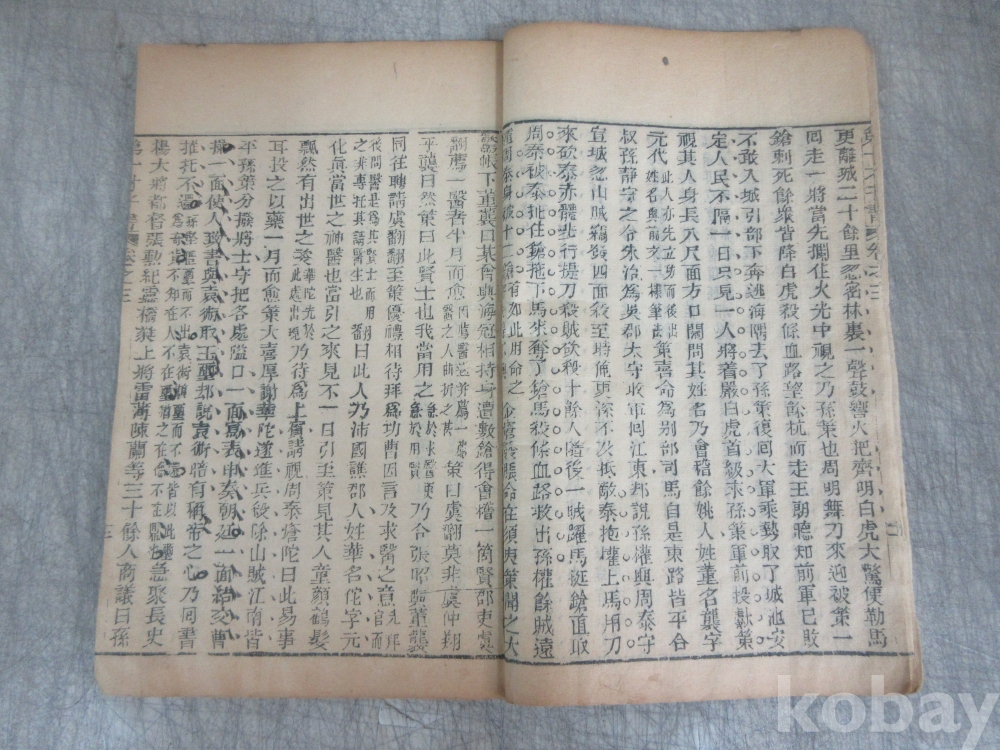 更離城二十餘里忽密林裏一聲鼓響火把齊明白虎大驚便勒馬
回走一將當先攔住火光中視之乃孫策也周明舞刀來迎被策一
鎗刺死餘衆皆降白虎殺條血路望餘杭而走王朗聽知前軍已敗
不敢入城引部下奔逃海隅去了孫策復回大軍乘勢取了城池安
定人民不隔一日只見一人將着嚴白虎首級來孫策軍前投獻策
視其人身長八尺面方口闊問其姓名乃會稽餘姚人姓董名襲字
元代策喜命為別部司馬自是東路皆平令
叔孫靜守之令朱治為吳郡太守收軍回江東却說孫權與周泰守
宣城忽山賊竊發四面殺至時値更深不及抵敵泰抱權上馬用刀
來砍泰赤體步行提刀殺賊砍殺十餘人隨後一賊躍馬挺鎗直取
周泰被泰扯住鎗拖下馬來奪了鎗馬殺條血路救出孫權餘賊遠
遁周泰身被十二鎗金瘡發脹命在須臾策聞之大
驚帳下董襲曰某曾與海寇相持身遭數鎗得會稽一箇賢郡吏虞
翻薦一醫者半月而愈策曰虞翻莫非虞仲翔
乎襲曰然策曰此賢士也我當用之乃令張昭與董襲
同往聘請虞翻翻至策優禮相待拜爲功曹因言及求醫之意
翻曰此人乃沛國譙郡人姓華名佗字元
化眞當世之神醫也當引之來見不一日引至策見其人童顏鶴髮
飄然有出世之姿乃待爲上賓請視周泰瘡佗曰此易事
耳投之以藥一月而愈策大喜厚謝華陀遂進兵殺除山賊江南皆
平孫策分撥將士守把各處隘口一面寫表申奏朝廷一面結交曹
操一面使人致書與袁術取玉璽却說袁術暗有稱帝之心乃回書
推托不還急聚長史
楊大將都督張勳紀靈橋蕤上將雷薄陳蘭等三十餘人商議曰孫
kobay